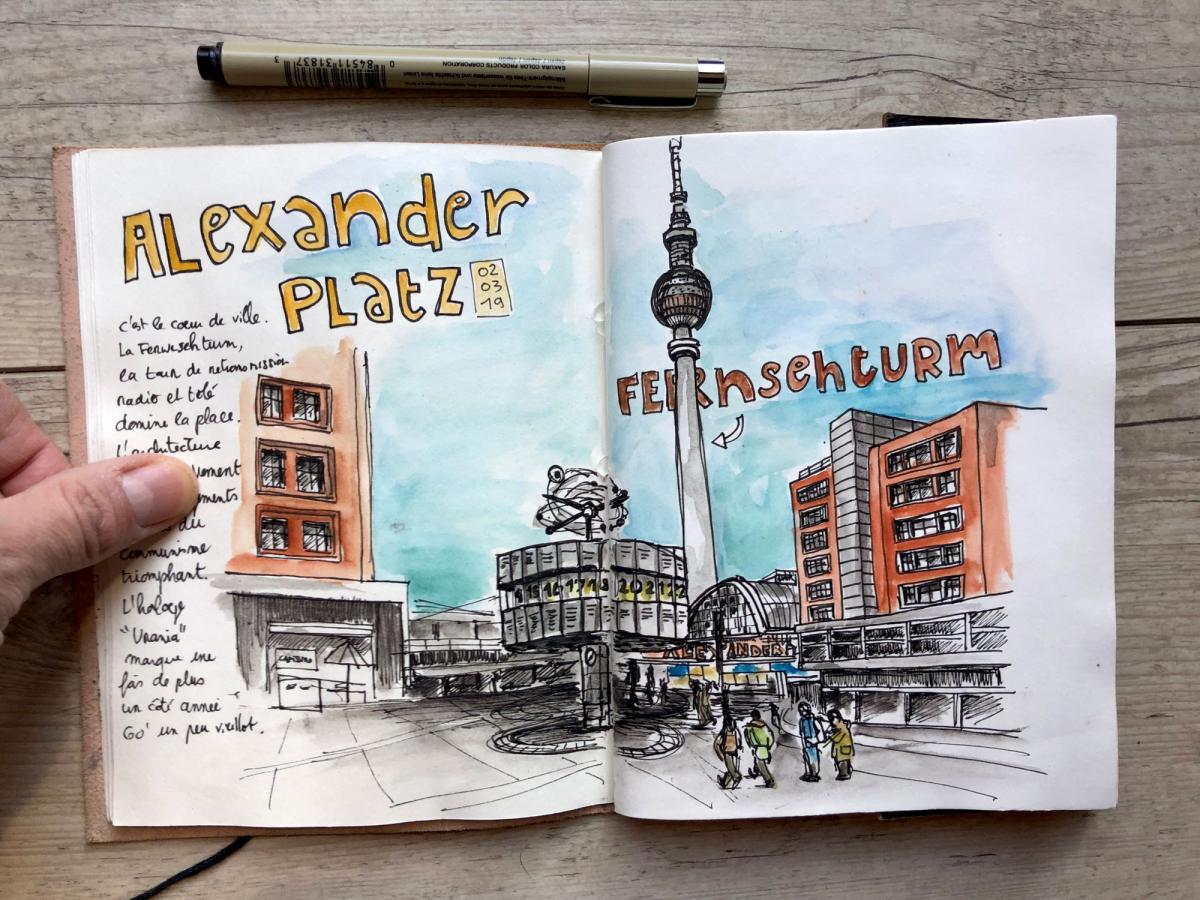 SAKURA COLOR PRODUCTS CORPORATION
0 84511 31837 3
ALexander
PLatz
02
03
19
c'est le cœur de ville.
La Fernsehturm,
la tour de retransmission
radio et télé
domine la place.
L'architecture
du
communisme
triomphant.
L'horloge
"Urania"
marque une
fois de plus
un côté année
60' un peu vieillot.
FERnsehtURM
15 16 17 18
20 21 22
ALEXANDERP